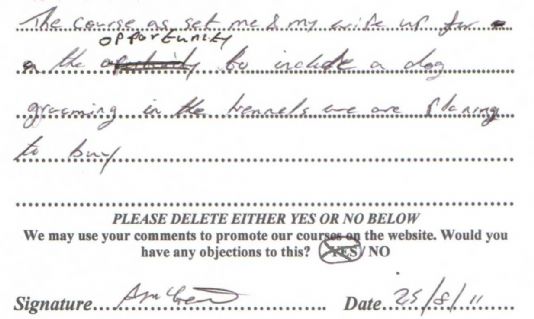 The course as set me & my wife up for
opportunity
a the to include a dog
grooming in the kennels we are planing
to buy
PLEASE DELETE EITHER YES OR NO BELOW
We may use your comments to promote our courses on the website. Would you
have any objections to this? YES / NO
Signature Date 25/8/11